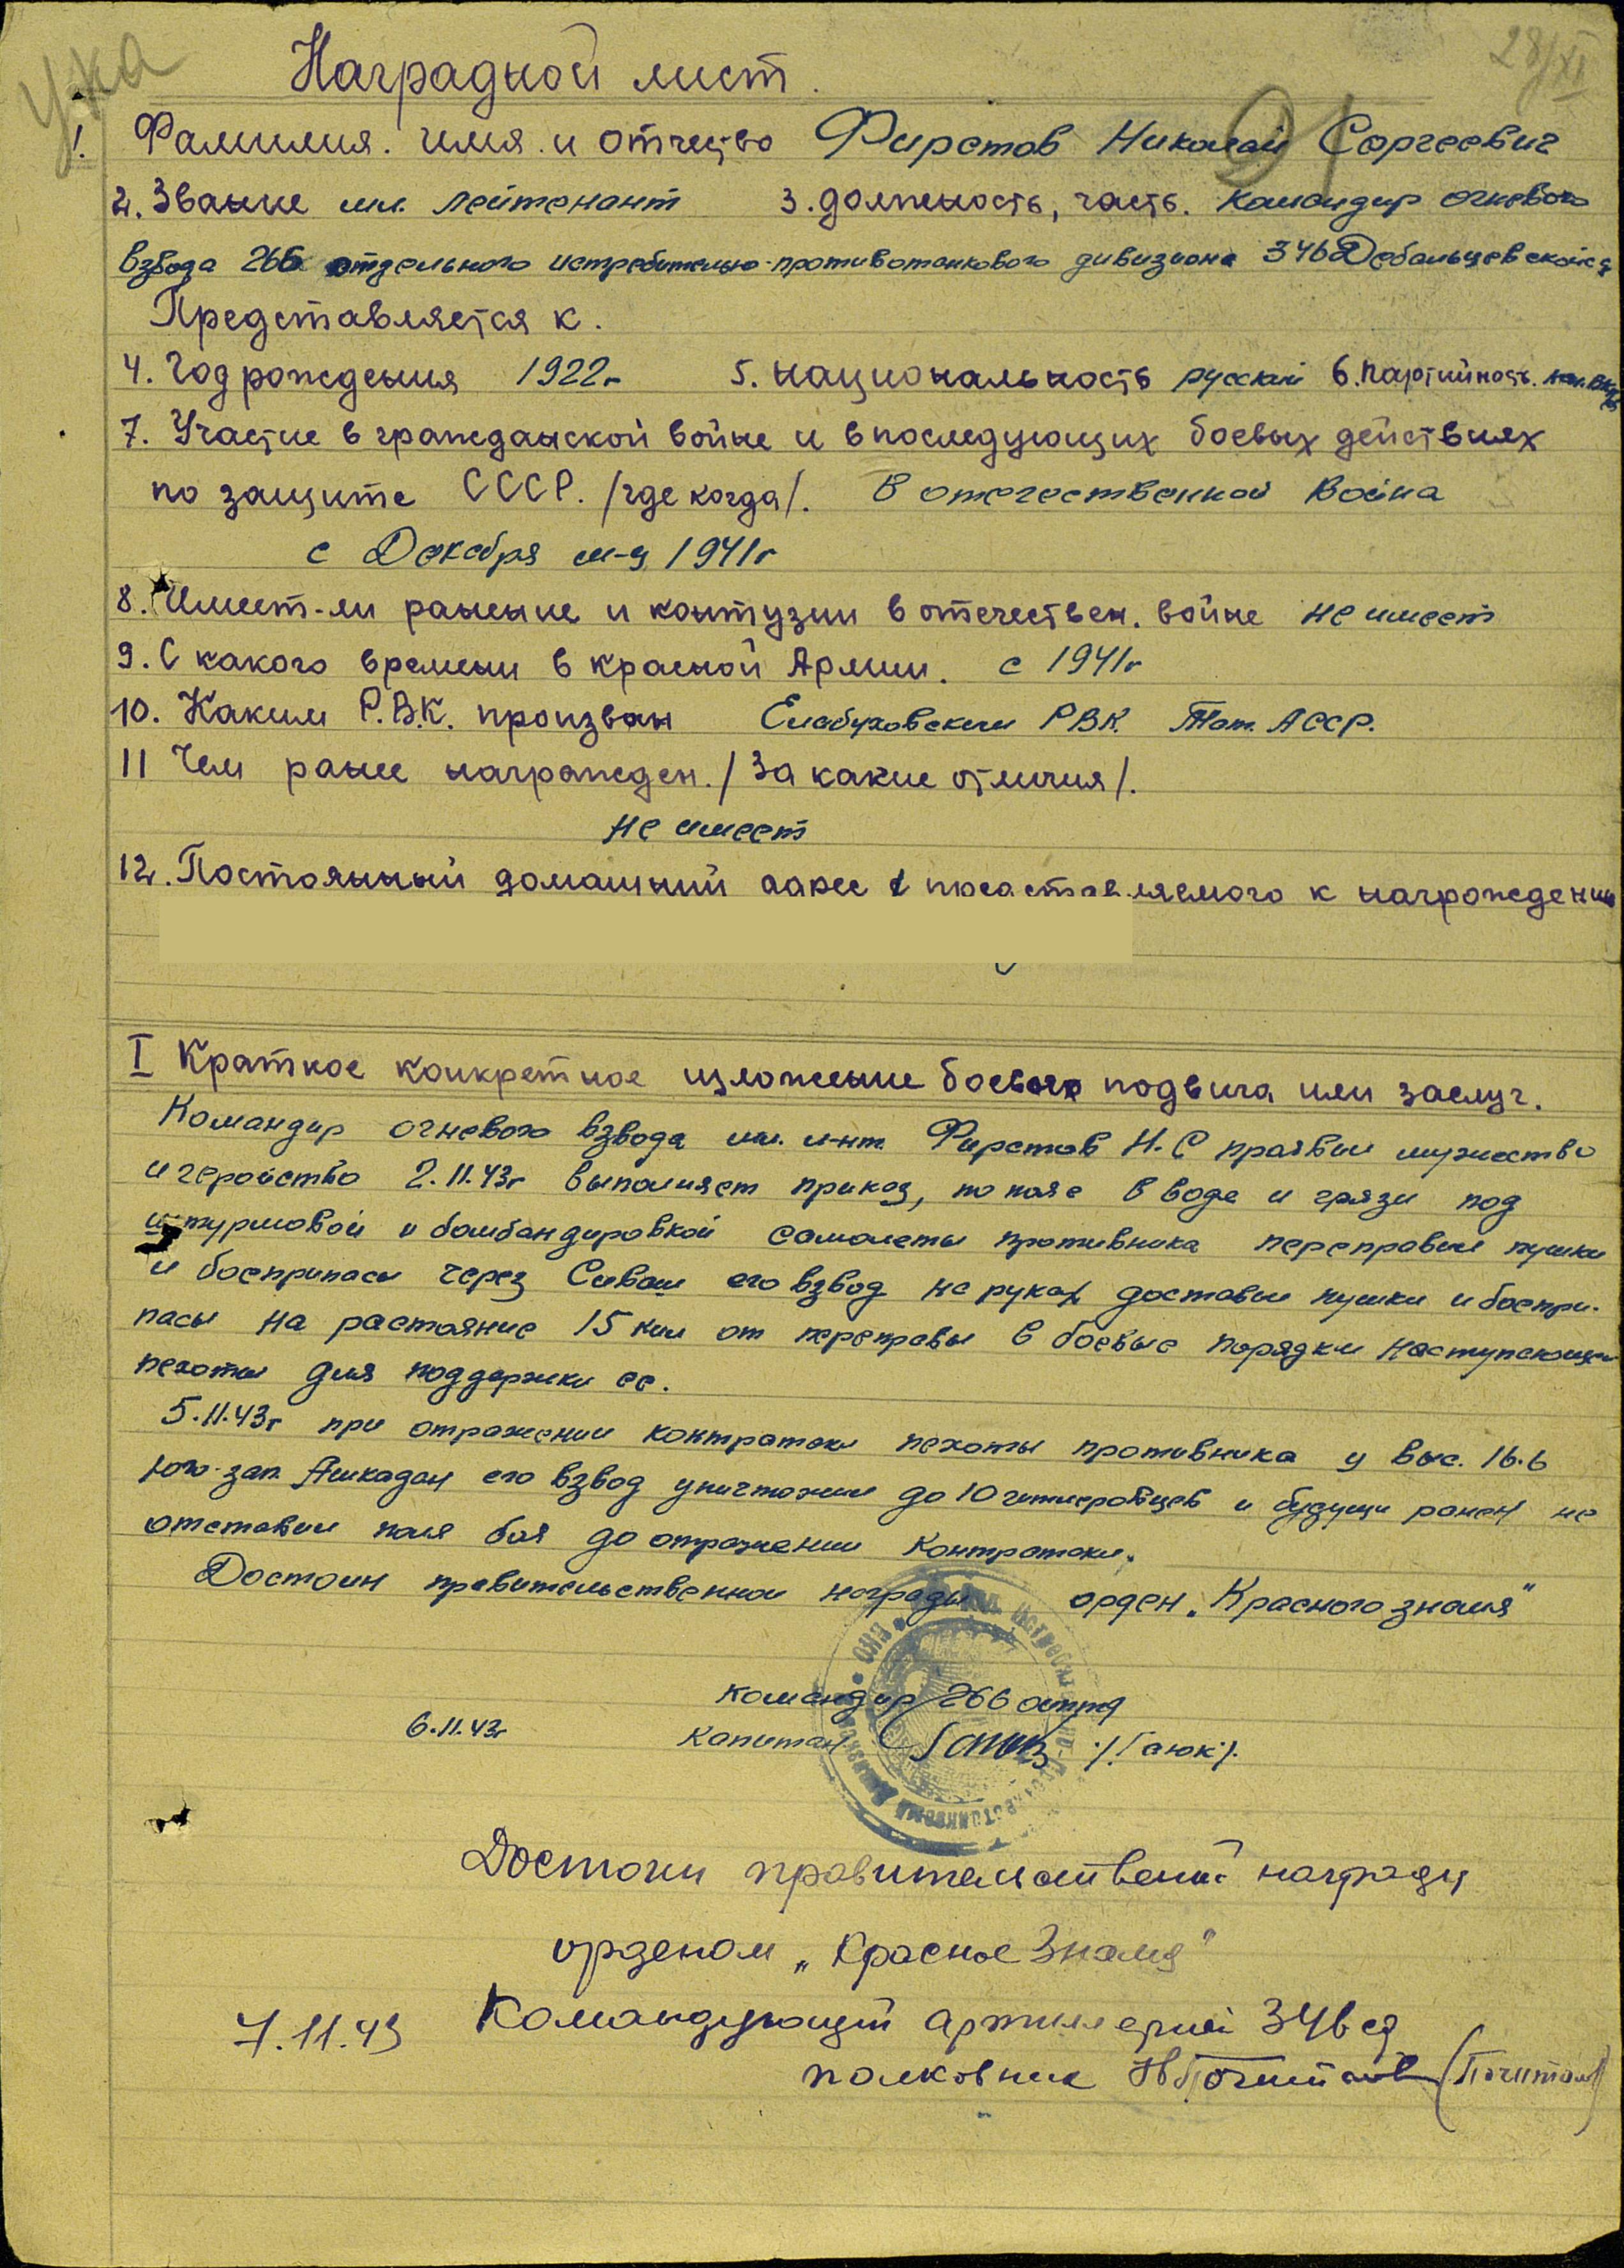 У-ка
28/XI
Наградной лист.
1. Фамилия. имя. и отчество Фирстов Николай Сергеевич
2. Звание мл. лейтенант 3. должность, часть. командир огневого
взвода 266 отдельного истребительно-противотанкового дивизиона 346 Дебальцевской сд
Представляется к.
4. Год рождения 1922г 5. национальность русский 6. партийность.
7. Участие в гражданской войне и в последующих боевых действиях
по защите СССР. /где когда/. В отечественной война
с Декабря м-ц 1941г
8. Имеет-ли ранение и контузии в отечествен. войне не имеет
9. С какого времени в красной Армии. с 1941г
10. Каким Р.В.К. произван Елабуховским РВК Тат. АССР.
11 Чем ранее награжден. /За какие отличия/.
не имеет
12. Постоянный домашний адрес представляемого к награждению
I Краткое конкретное изложение боевого подвига или заслуг.
Командир огневого взвода мл. л-нт Фирстов Н.С проявил мужество
и геройство 2.11.43г выполняет приказ, по пояс в воде и грязи под
штурмовой и бомбандировкой самолеты противника переправил пушки
и боеприпасы через Сиваш его взвод на руках доставил пушки и боепри-
пасы на растояние 15 клм от переправы в боевые порядки наступающей
пехоты для поддержки ее.
5.11.43г при отражении контратаки пехоты противника у выс. 16.6
юго-зап. Ашкадан его взвод уничтожил до 10 гитлеровцев и будущи ранен не
отставил поля боя до отражении контратаки.
Достоин правительственной награды орден „Красного знамя"
командир 266 оиптд
6.11.43г капитан /Гаюк/.
Достоин правительственной награды
орденом „Красное Знамя"
7.11.43 Командующий артиллерией 346 сд
полковник